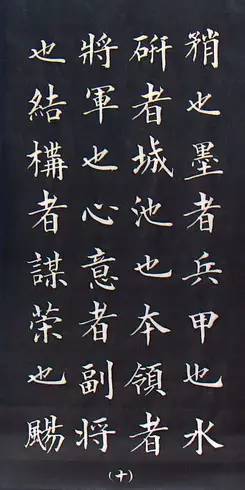 矟也墨者兵甲也水
硏者城池也夲領者
將軍也心意者副将
也結構者謀策也颺
（十）